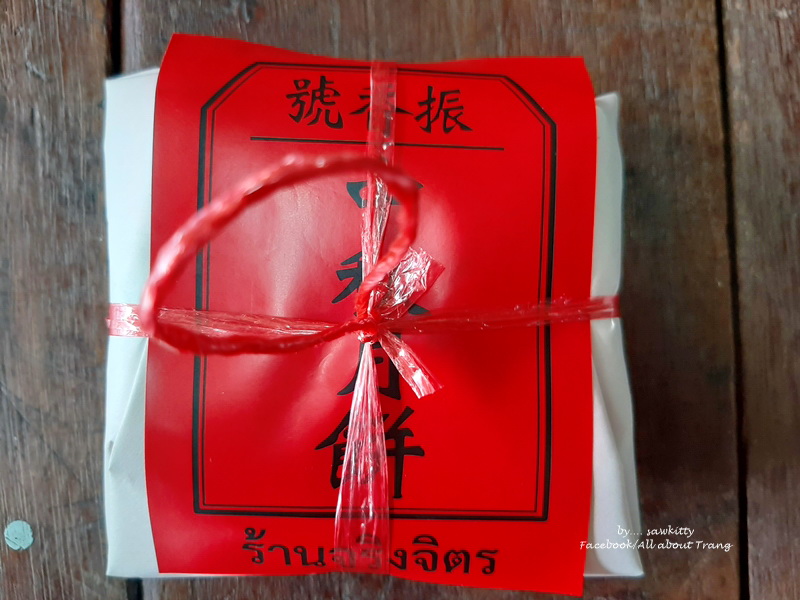 號春振
中秋月餅
ร้านจริงจิตร
by.... sawkitty
Facebook/All about Trang